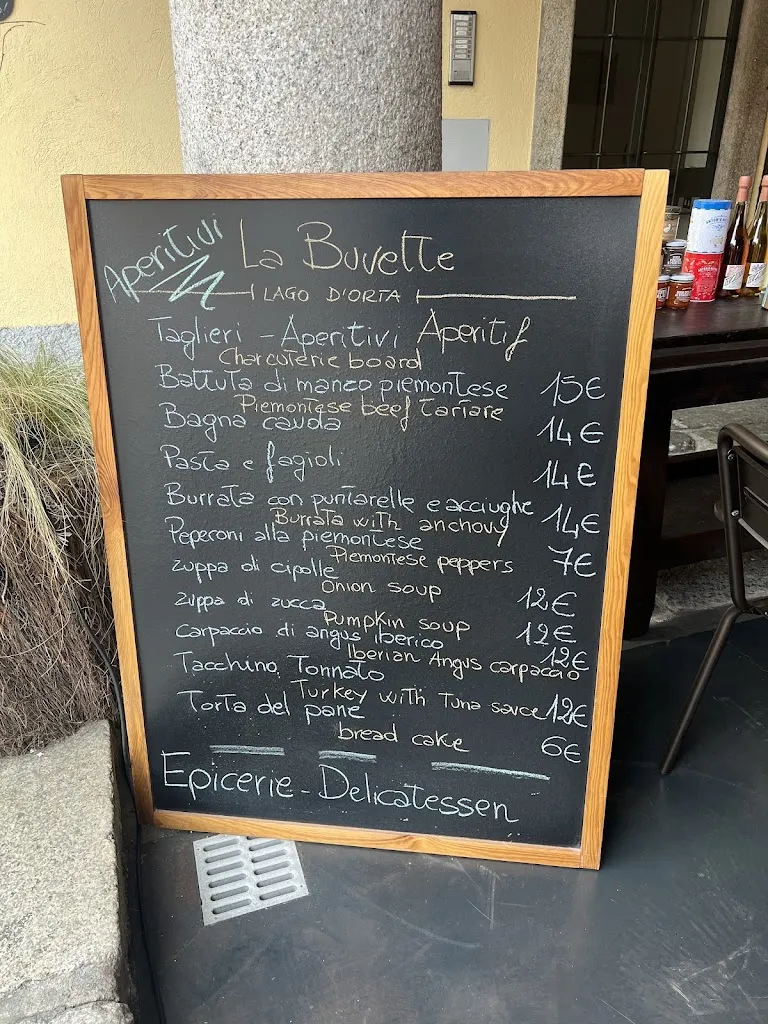 Aperitivi
La Buvette
LAGO D'ORTA
Taglieri - Aperitivi Aperitif
Charcuterie board
Battuta di manzo piemontese 15€
Piemontese beef Tartare
Bagna cauda 14€
Pasta e fagioli 14€
Burrata con puntarelle e acciughe 14€
Burrata with anchovy
Peperoni alla piemontese 7€
Piemontese peppers
zuppa di cipolle 12€
Onion soup
zuppa di zucca 12€
Pumpkin soup
carpaccio di angus iberico 12€
Iberian Angus carpaccio
Tacchino Tonnato 12€
Turkey with Tuna sauce
Torta del pane 6€
bread cake
Epicerie - Delicatessen